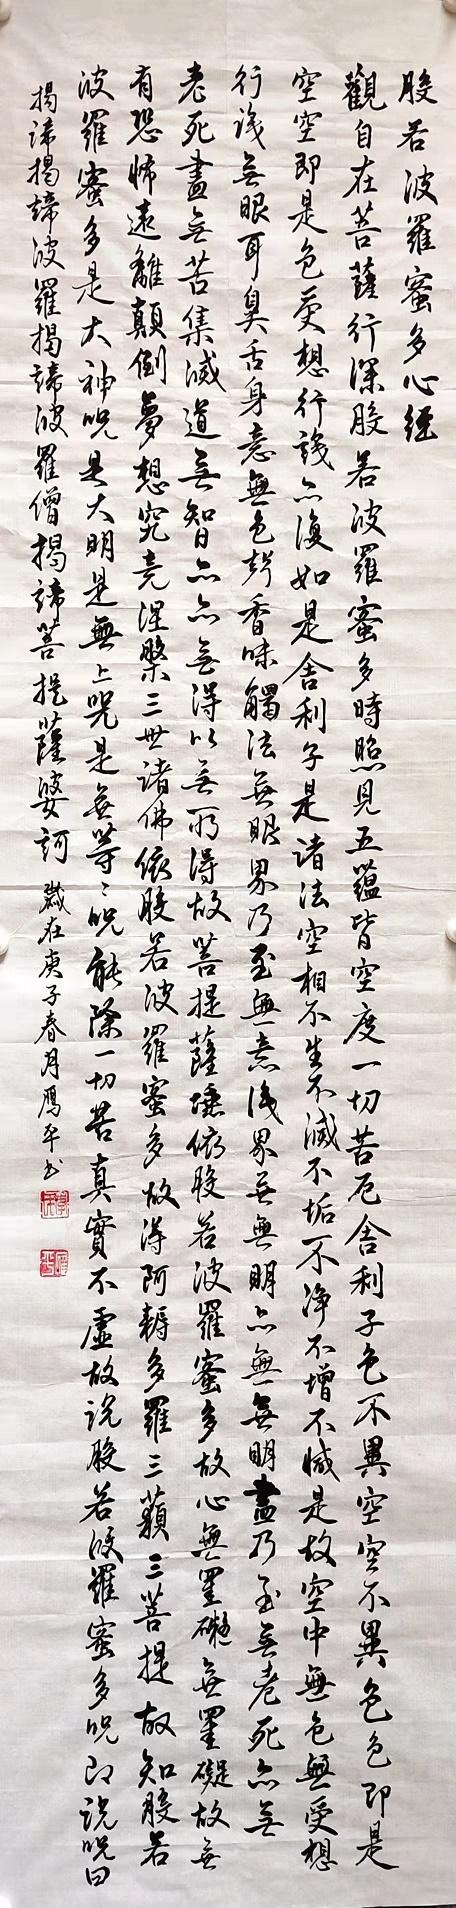 般若波羅蜜多心經
觀自在菩薩行深般若波羅蜜多時照見五蘊皆空度一切苦厄舍利子色不異空空不異色色即是
空空即是色受想行識亦復如是舍利子是諸法空相不生不滅不垢不淨不增不減是故空中無色無受想
行識無眼耳鼻舌身意無色聲香味觸法無眼界乃至無意識界無無明亦無無明盡乃至無老死亦無
老死盡無苦集滅道無智亦亦無得以無所得故菩提薩埵依般若波羅蜜多故心無罣礙無罣礙故無
有恐怖遠離顛倒夢想究竟涅槃三世諸佛依般若波羅蜜多故得阿耨多羅三藐三菩提故知般若
波羅蜜多是大神咒是大明是無上咒是無等等咒能除一切苦真實不虛故說般若波羅蜜多咒即說咒曰
揭諦揭諦波羅揭諦波羅僧揭諦菩提薩婆訶 歲在庚子春月雁平書